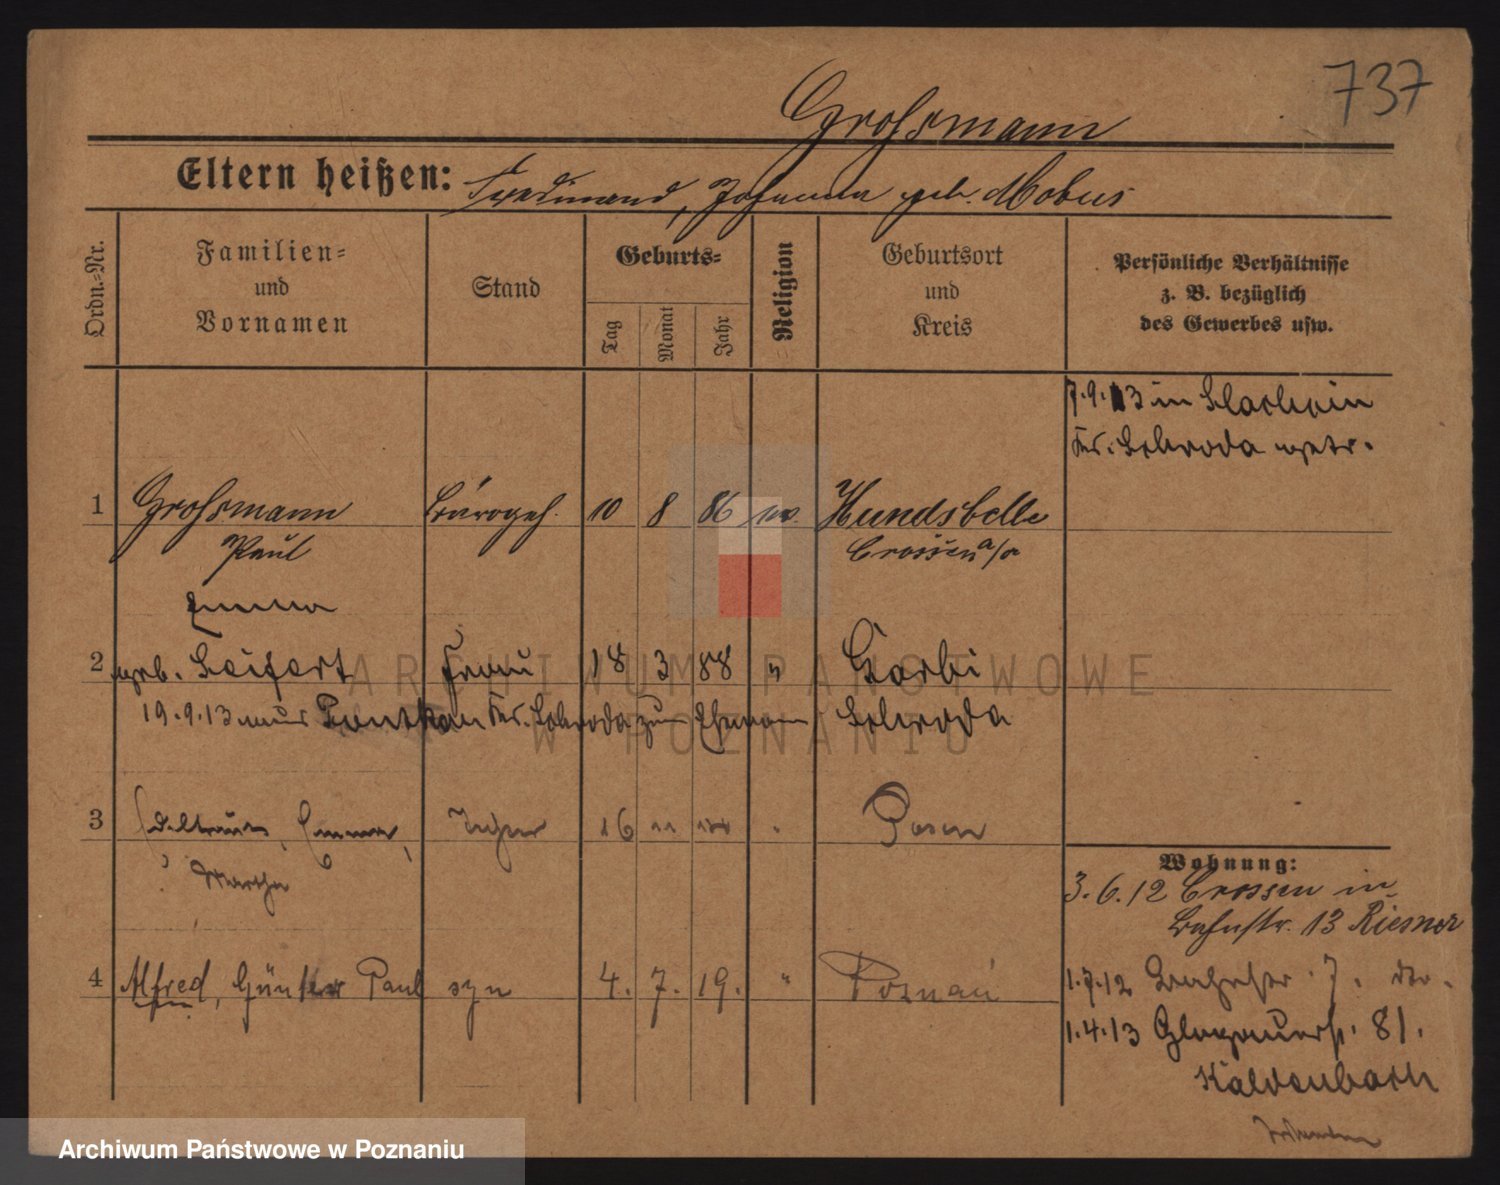 737
Grohsmann
Eltern heißen: Ferdinand, Johanna geb. Mobus
Ordn.-Nr.
Familien-
und
Vornamen
Stand
Geburts-
Tag
Monat
Jahr
Religion
Geburtsort
und
Kreis
Persönliche Verhältnisse
z. B. bezüglich
des Gewerbes usw.
7.9.13 in
Kr. Schroda getr.
1 Grohsmann Bürogeh. 10 8 86 ev. Hundsbelle
Paul Crossen a/o
Emma
2 geb. Seifert Frau 18 3 88 " Garbi
19.9.13 aus Kr. Schroda zum Ehemann Schroda
3 Edeltraut, Emma, 16 Posen
Martha
Wohnung:
3.6.12 Crossen in
Bahnstr. 13 Riesner
4 Alfred, Günter Paul syn 4. 7. 19. " Poznań
1.7.12 7.
1.4.13 Glogauerstr. 81.
Kaldenbach
ARCHIWUM PAŃSTWOWE
W POZNANIU
Archiwum Państwowe w Poznaniu